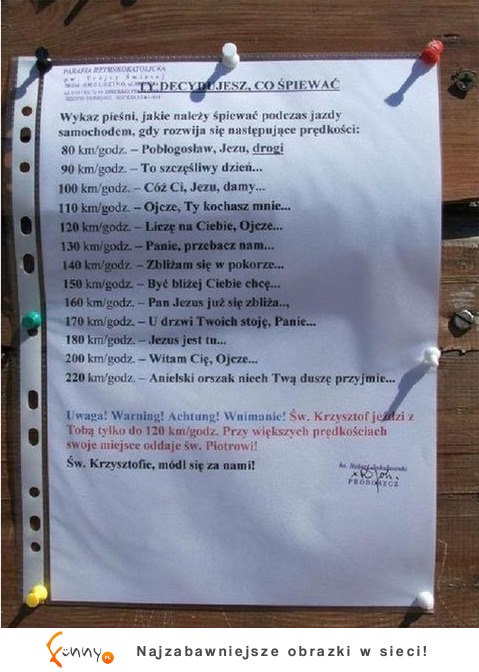 PARAFIA RZYMSKOKATOLICKA
p.w. Trójcy Świętej
TY DECYDUJESZ, CO ŚPIEWAĆ
Wykaz pieśni, jakie należy śpiewać podczas jazdy
samochodem, gdy rozwija się następujące prędkości:
80 km/godz. – Pobłogosław, Jezu, drogi
90 km/godz. – To szczęśliwy dzień...
100 km/godz. – Cóż Ci, Jezu, damy...
110 km/godz. – Ojcze, Ty kochasz mnie...
120 km/godz. – Liczę na Ciebie, Ojcze...
130 km/godz. – Panie, przebacz nam...
140 km/godz. – Zbliżam się w pokorze...
150 km/godz. – Być bliżej Ciebie chcę...
160 km/godz. – Pan Jezus już się zbliża..,
170 km/godz. – U drzwi Twoich stoję, Panie...
180 km/godz. – Jezus jest tu...
200 km/godz. – Witam Cię, Ojcze...
220 km/godz. – Anielski orszak niech Twą duszę przyjmie...
Uwaga! Warning! Achtung! Wnimanie! Św. Krzysztof jeździ z
Tobą tylko do 120 km/godz. Przy większych prędkościach
swoje miejsce oddaje św. Piotrowi!
Św. Krzysztofie, módl się za nami!
PROBOSZCZ
Funny.PL
Najzabawniejsze obrazki w sieci!